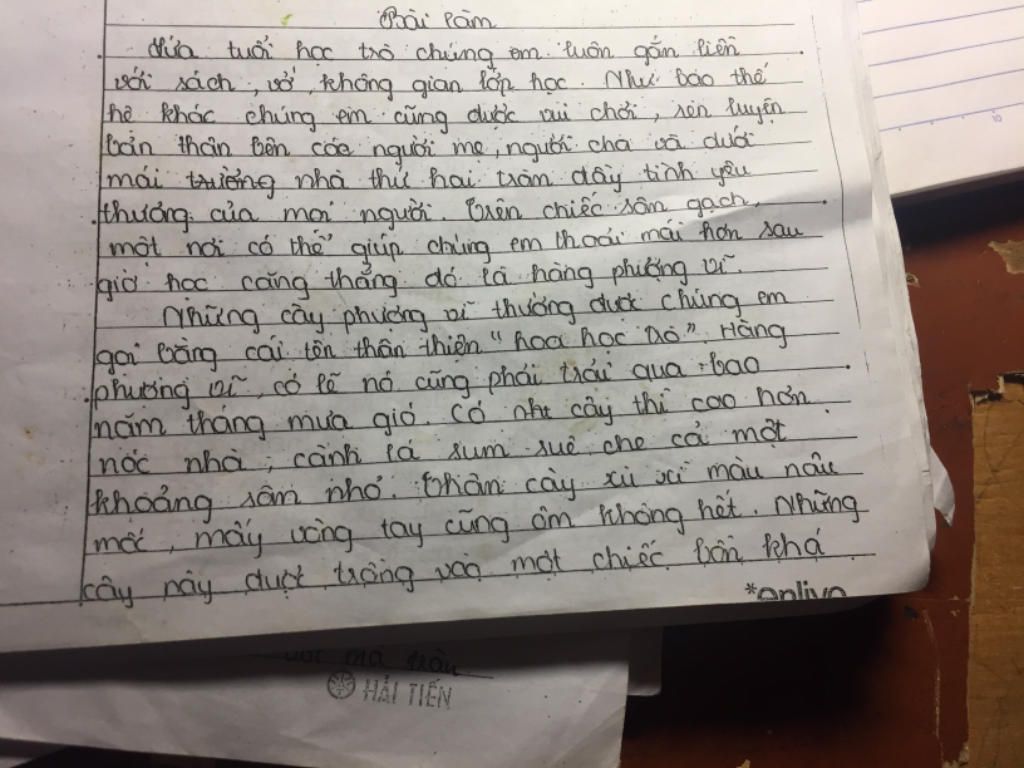 Bài làm
Lứa tuổi học trò chúng em luôn gắn liền
với sách, vở, không gian lớp học. Như bao thế
hệ khác chúng em cũng được vui chơi, rèn luyện
bản thân bên các người mẹ, người cha và dưới
mái trường nhà thứ hai tràn đầy tình yêu
thương của mọi người. Trên chiếc sân gạch,
một nơi có thể giúp chúng em thoải mái hơn sau
giờ học căng thẳng đó là hàng phượng vĩ.
Những cây phượng vĩ thường được chúng em
gọi bằng cái tên thân thiện "hoa học trò". Hàng
phượng vĩ, có lẽ nó cũng phải trải qua bao
năm tháng mưa gió. Có như cây thì cao hơn
nóc nhà, cành lá sum suê che cả một
khoảng sân nhỏ. Thân cây xù xì màu nâu
mốc, mấy vòng tay cũng ôm không hết. Những
cây này được trồng vào một chiếc bồn khá
mã trần
HẢI TIẾN